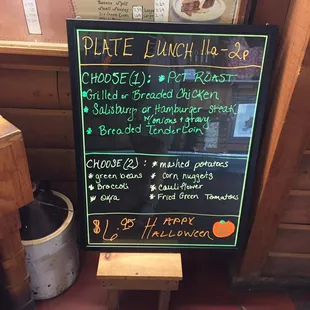 PLATE LUNCH 11a-2p
CHOOSE(1): * POT ROAST
* Grilled or Breaded Chicken
* Salisbury or Hamburger steak
w/onions & gravy
* Breaded Tenderloin
CHOOSE(2): * mashed potatoes
* green beans * corn nuggets
* Broccoli * Cauliflower
* Okra * Fried Green Tomatoes
$6.95 HAPPY
HALLOWEEN